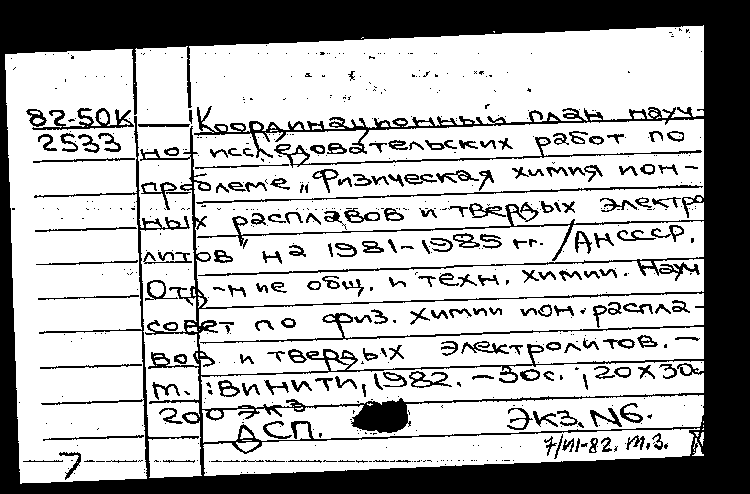 82-50К Координационный план науч-
2533 но-исследовательских работ по
проблеме „Физическая химия ион-
ных расплавов и твердых электро
литов" на 1981-1985 гг. /АНСССР.
Отд-ние общ. и техн. химии. Науч
совет по физ. химии ион. распла-
вов и твердых электролитов. –
м. : ВИНИТИ, 1982. – 30с. ; 20х30с
200 экз
ДСП. ЭКЗ. N6.
7/VII-82. т.3.
7